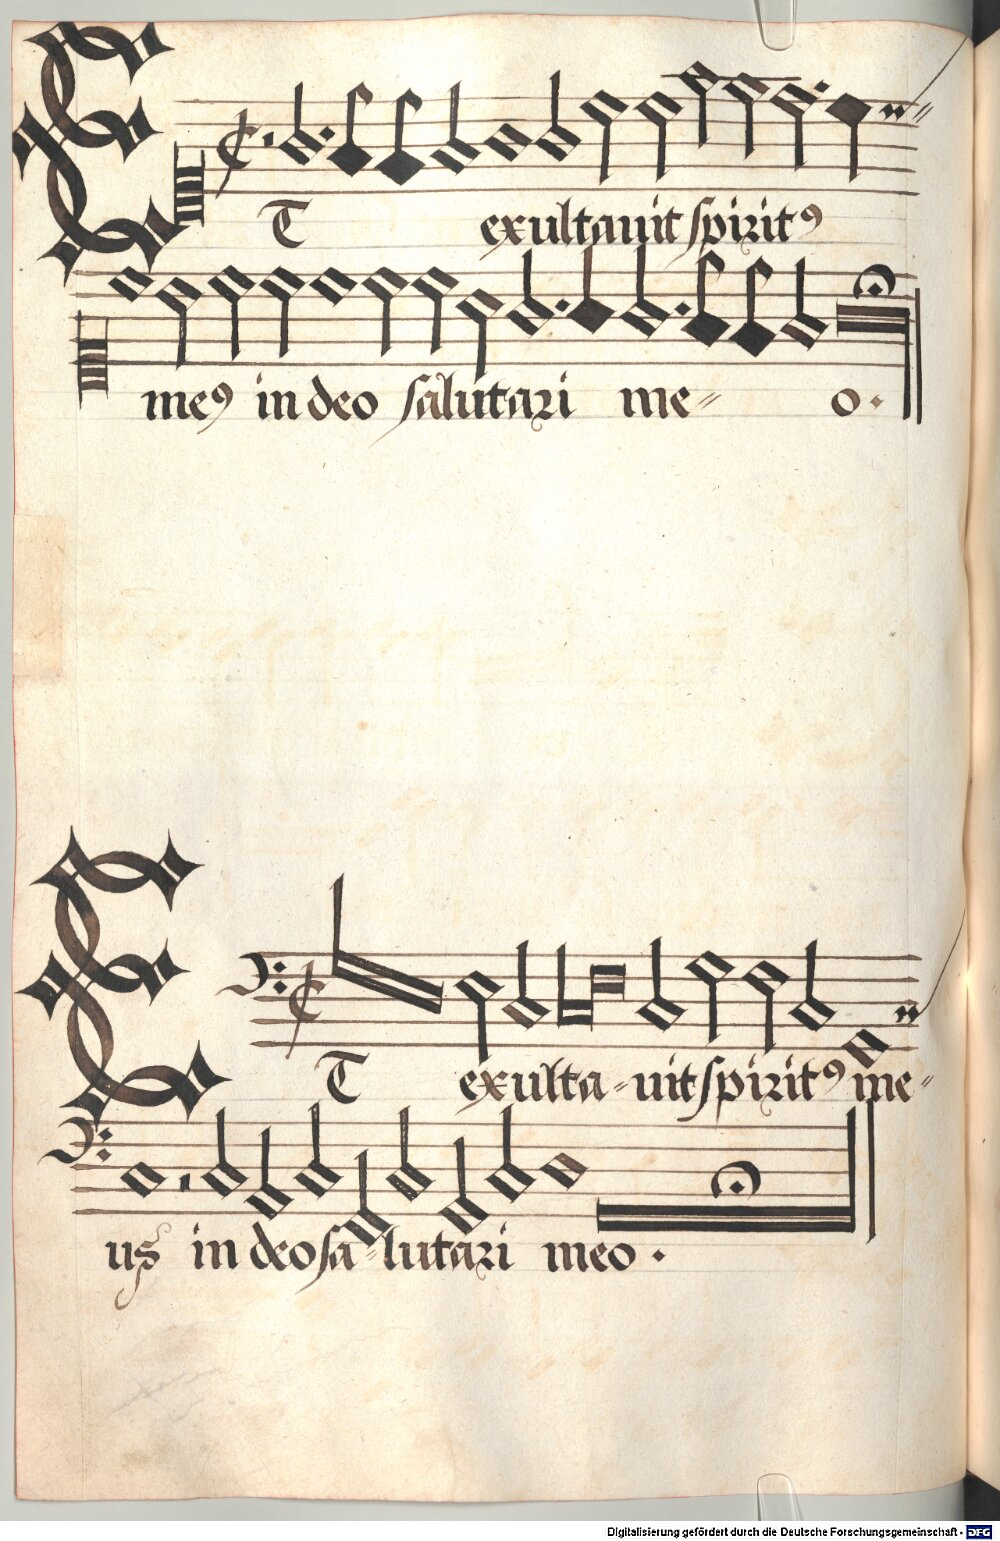 ET exultauit spiritꝰ
meꝰ in deo salutari me⸗ o.
ET exulta⸗uit spiritꝰ me⸗
us in deo sa⸗lutari meo.
Digitalisierung gefördert durch die Deutsche Forschungsgemeinschaft - DFG